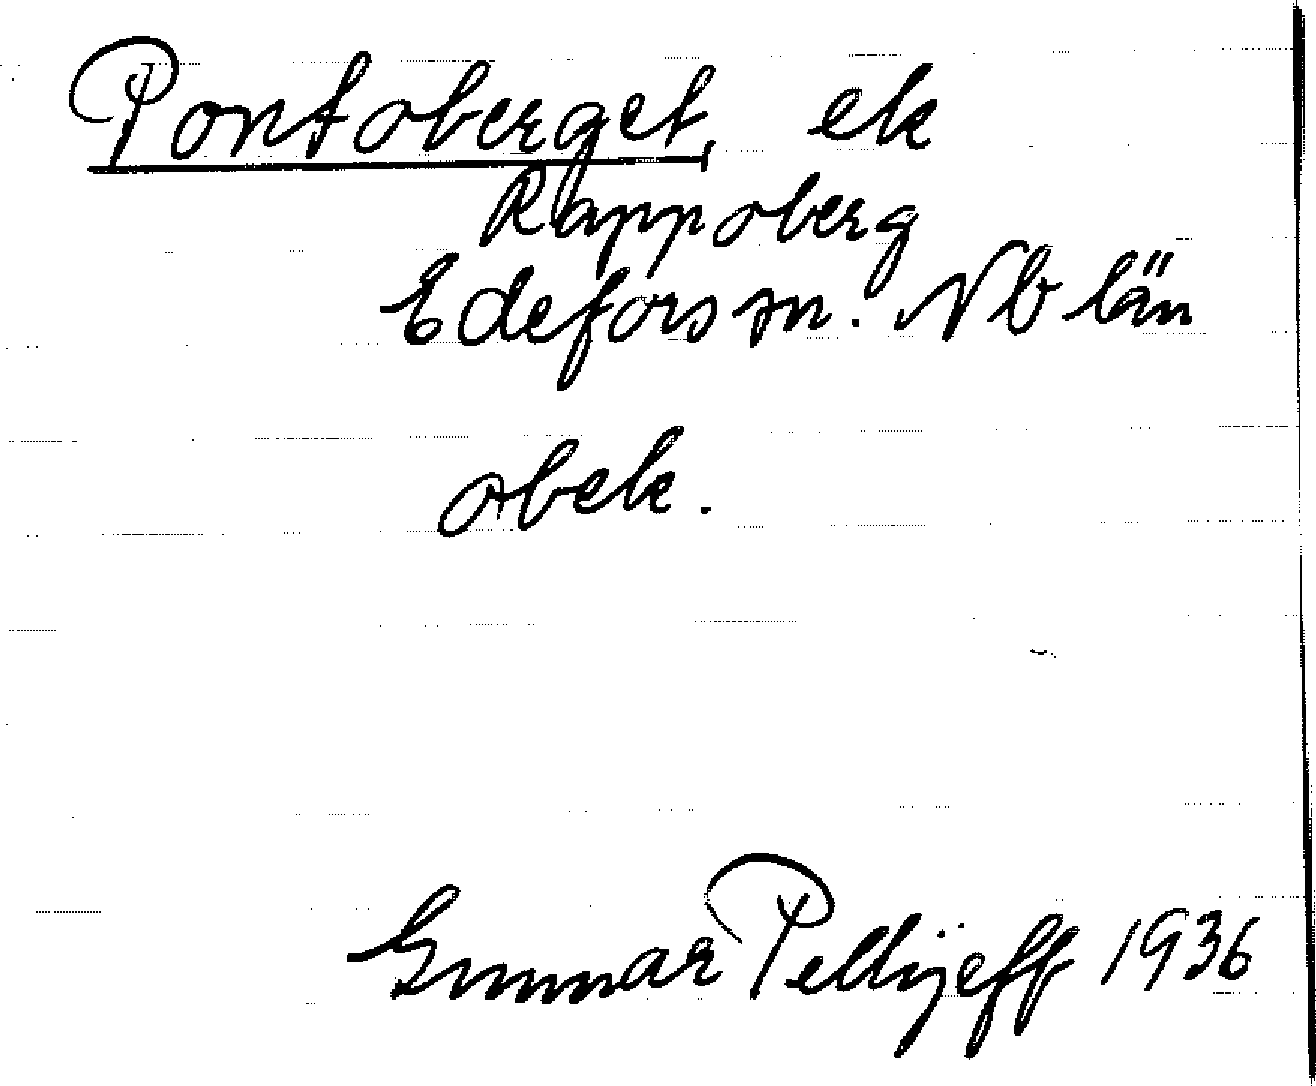 Pontoberget, ek
Rappoberg
Edefors sn. Nb län
obek.
Gunnar Pellijeff 1936